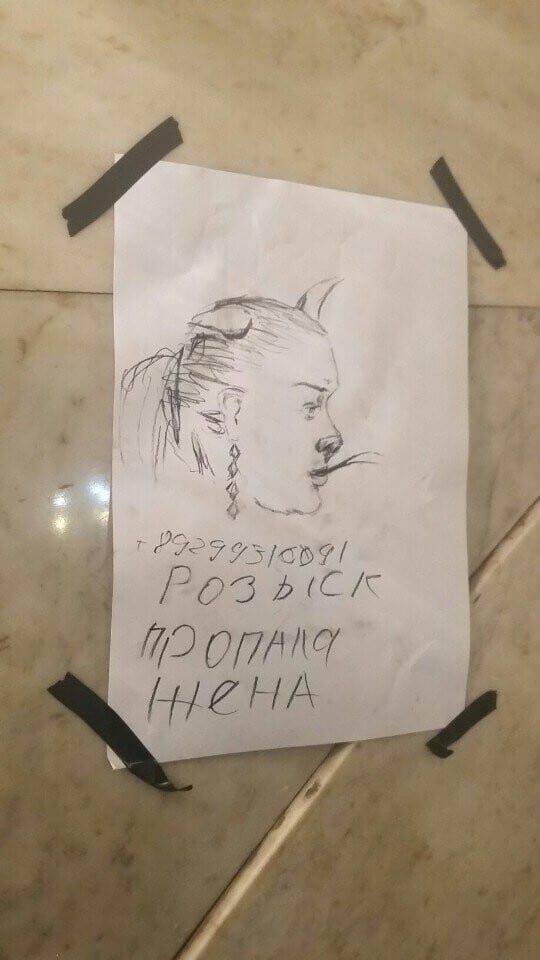 +89299310091
РОЗЫСК
ПРОПАЛА
ЖЕНА